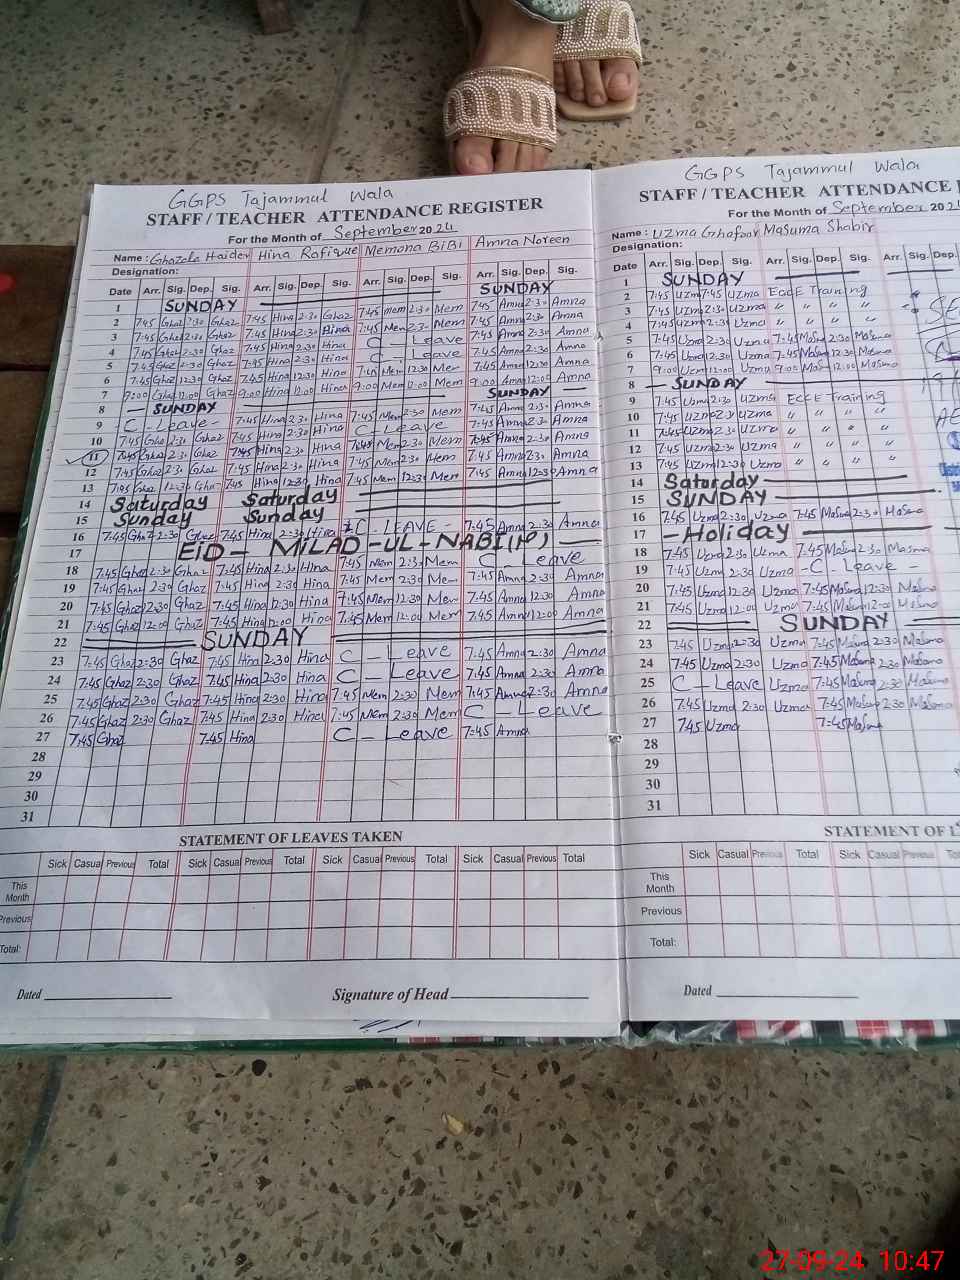 GGPS Tajammul Wala
STAFF / TEACHER ATTENDANCE REGISTER
For the Month of September 2024
Name : Ghazala Haider Hina Rafique Memona BiBi Amna Noreen
Designation:
Date Arr. Sig. Dep. Sig. Arr. Sig. Dep. Sig. Arr. Sig. Dep. Sig. Arr. Sig. Dep. Sig.
1 SUNDAY SUNDAY
2 7:45 Ghaz 2:30 Ghaz 7:45 Hina 2:30 Ghaz 7:45 mem 2:30 Mem 7:45 Amna 2:30 Amna
3 7:45 Ghaz 2:30 Ghaz 7:45 Hina 2:30 Hina 7:45 Mem 2:3 Mem 7:45 Amna 2:30 Amna
4 7:45 Ghaz 2:30 Ghaz 7:45 Hina 2:30 Hina C - Leave 7:45 Amna 2:30 Amna
5 7:45 Ghaz 2:30 Ghaz 7:45 Hina 2:30 Hina C - Leave 7:45 Amna 2:30 Amna
6 7:45 Ghaz 12:30 Ghaz 7:45 Hina 12:30 Hina 7:45 Mem 12:30 Mem 7:45 Amna 12:30 Amna
7 9:00 Ghaz 12:00 Ghaz 9:00 Hina 12:00 Hina 9:00 Mem 12:00 Mem 9:00 Amna 12:00 Amna
8 - SUNDAY SUNDAY
9 C - Leave - 7:45 Hina 2:30 Hina 7:45 Mem 2:30 Mem 7:45 Amna 2:30 Amna
10 7:45 Ghaz 2:30 Ghaz 7:45 Hina 2:30 Hina C - Leave 7:45 Amna 2:30 Amna
11 7:45 Ghaz 2:30 Ghaz 7:45 Hina 2:30 Hina 7:45 Mem 2:30 Mem 7:45 Amna 2:30 Amna
12 7:45 Ghaz 2:30 Ghaz 7:45 Hina 2:30 Hina 7:45 Mem 2:30 Mem 7:45 Amna 2:30 Amna
13 7:45 Ghaz 12:30 Ghaz 7:45 Hina 12:30 Hina 7:45 Mem 12:30 Mem 7:45 Amna 12:30 Amna
14 Saturday Saturday
15 Sunday Sunday
16 7:45 Ghaz 2:30 Ghaz 7:45 Hina 2:30 Hina C - LEAVE - 7:45 Amna 2:30 Amna
17 EID - MILAD - UL - NABI
18 7:45 Ghaz 2:30 Ghaz 7:45 Hina 2:30 Hina 7:45 Mem 2:30 Mem C - Leave
19 7:45 Ghaz 2:30 Ghaz 7:45 Hina 2:30 Hina 7:45 Mem 2:30 Mem 7:45 Amna 2:30 Amna
20 7:45 Ghaz 12:30 Ghaz 7:45 Hina 12:30 Hina 7:45 Mem 12:30 Mem 7:45 Amna 12:30 Amna
21 7:45 Ghaz 12:00 Ghaz 7:45 Hina 12:00 Hina 7:45 Mem 12:00 Mem 7:45 Amna 12:00 Amna
22 SUNDAY
23 7:45 Ghaz 2:30 Ghaz 7:45 Hina 2:30 Hina C - Leave 7:45 Amna 2:30 Amna
24 7:45 Ghaz 2:30 Ghaz 7:45 Hina 2:30 Hina C - Leave 7:45 Amna 2:30 Amna
25 7:45 Ghaz 2:30 Ghaz 7:45 Hina 2:30 Hina 7:45 Mem 2:30 Mem 7:45 Amna 2:30 Amna
26 7:45 Ghaz 2:30 Ghaz 7:45 Hina 2:30 Hina 7:45 Mem 2:30 Mem C - Leave
27 7:45 Ghaz 7:45 Hina C - Leave 7:45 Amna
28
29
30
31
STATEMENT OF LEAVES TAKEN
Sick Casual Previous Total Sick Casual Previous Total Sick Casual Previous Total Sick Casual Previous Total
This Month
Previous
Total:
Dated Signature of Head
GGPS Tajammul Wala
STAFF / TEACHER ATTENDANCE
For the Month of September 202
Name : Uzma Ghafoor Masuma Shabir
Designation:
Date Arr. Sig. Dep. Sig. Arr. Sig. Dep. Sig. Arr. Sig. Dep.
1 SUNDAY
2 7:45 Uzm 7:45 Uzma ECCE Training
3 7:45 Uzm 2:30 Uzma " " "
4 7:45 Uzm 2:30 Uzma " " "
5 7:45 Uzma 2:30 Uzma 7:45 Mas 2:30 Masuma
6 7:45 Uzma 12:30 Uzma 7:45 Mas 12:30 Masuma
7 9:00 Uzm 12:00 Uzma 9:00 Mas 12:00 Masuma
8 - SUNDAY
9 7:45 Uzm 2:30 Uzma ECCE Training
10 7:45 Uzm 2:30 Uzma " " " "
11 7:45 Uzm 2:30 Uzma " " " "
12 7:45 Uzma 2:30 Uzma " " " "
13 7:45 Uzm 12:30 Uzma " " " "
14 Saturday
15 SUNDAY
16 7:45 Uzma 2:30 Uzma 7:45 Masuma 2:30 Masuma
17 - Holiday
18 7:45 Uzma 2:30 Uzma 7:45 Masum 2:30 Masma
19 7:45 Uzma 2:30 Uzma - C - Leave -
20 7:45 Uzma 12:30 Uzma 7:45 Masuma 12:30 Masuma
21 7:45 Uzma 12:00 Uzma 7:45 Masuma 12:00 Masuma
22 SUNDAY
23 7:45 Uzma 2:30 Uzma 7:45 Masuma 2:30 Masuma
24 7:45 Uzma 2:30 Uzma 7:45 Masuma 2:30 Masuma
25 C - Leave Uzma 7:45 Masuma 2:30 Masuma
26 7:45 Uzma 2:30 Uzma 7:45 Masuma 2:30 Masuma
27 7:45 Uzma 7:45 Masuma
28
29
30
31
STATEMENT OF
Sick Casual Previous Total Sick Casual Previous
This Month
Previous
Total:
Dated
27-09-24 10:47